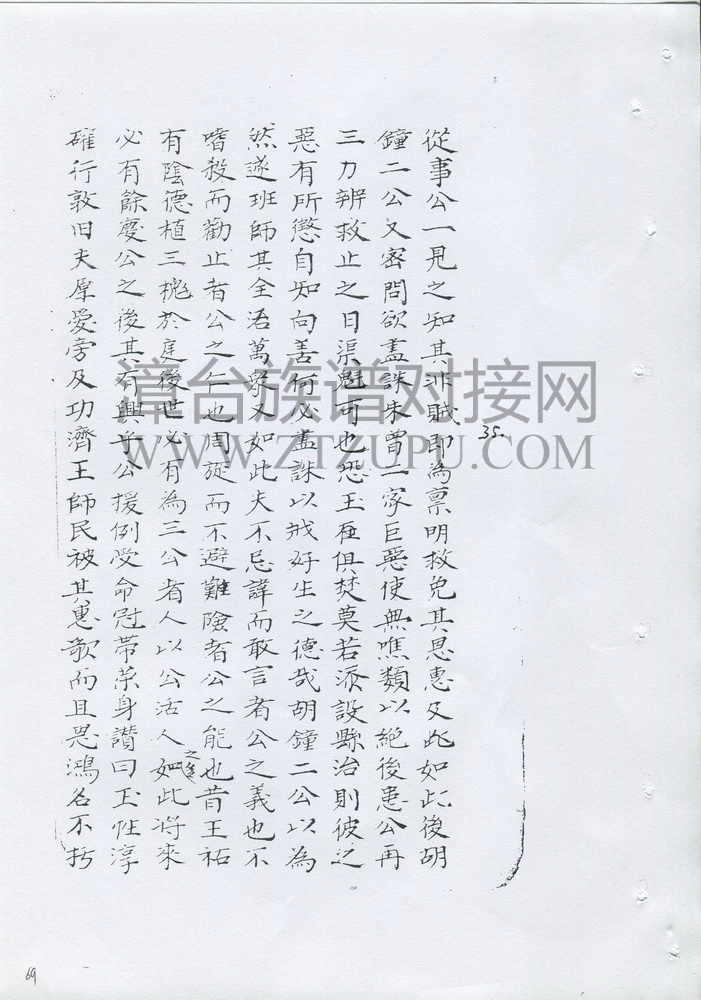 從事公一見之知其非賊即為禀明救免其恩惠及此如此後胡
鐘二公又密問欲盡誅朱曾二家巨惡使無噍類以絕後患公再
三力辨救止之曰渠魁可也恐玉石俱焚莫若添設縣治則彼之
惡有所懲自知向善何必盡誅以戕好生之德哉胡鐘二公以為
然遂班師其全活萬衆又如此夫不忌諱而敢言者公之義也不
嗜殺而勸止者公之仁也周旋而不避難險者公之能也昔王祐
有陰德植三槐於庭後世必有為三公者人以公活人之多如此将來
必有餘慶公之後其有興乎公援例受命冠帶荣身讃曰玉性淳
確行敦旧夫厚愛旁及功濟王師民被其惠歌而且思鴻名不朽
35.
69
漳台族谱对接网
WWW.ZTZUPU.COM